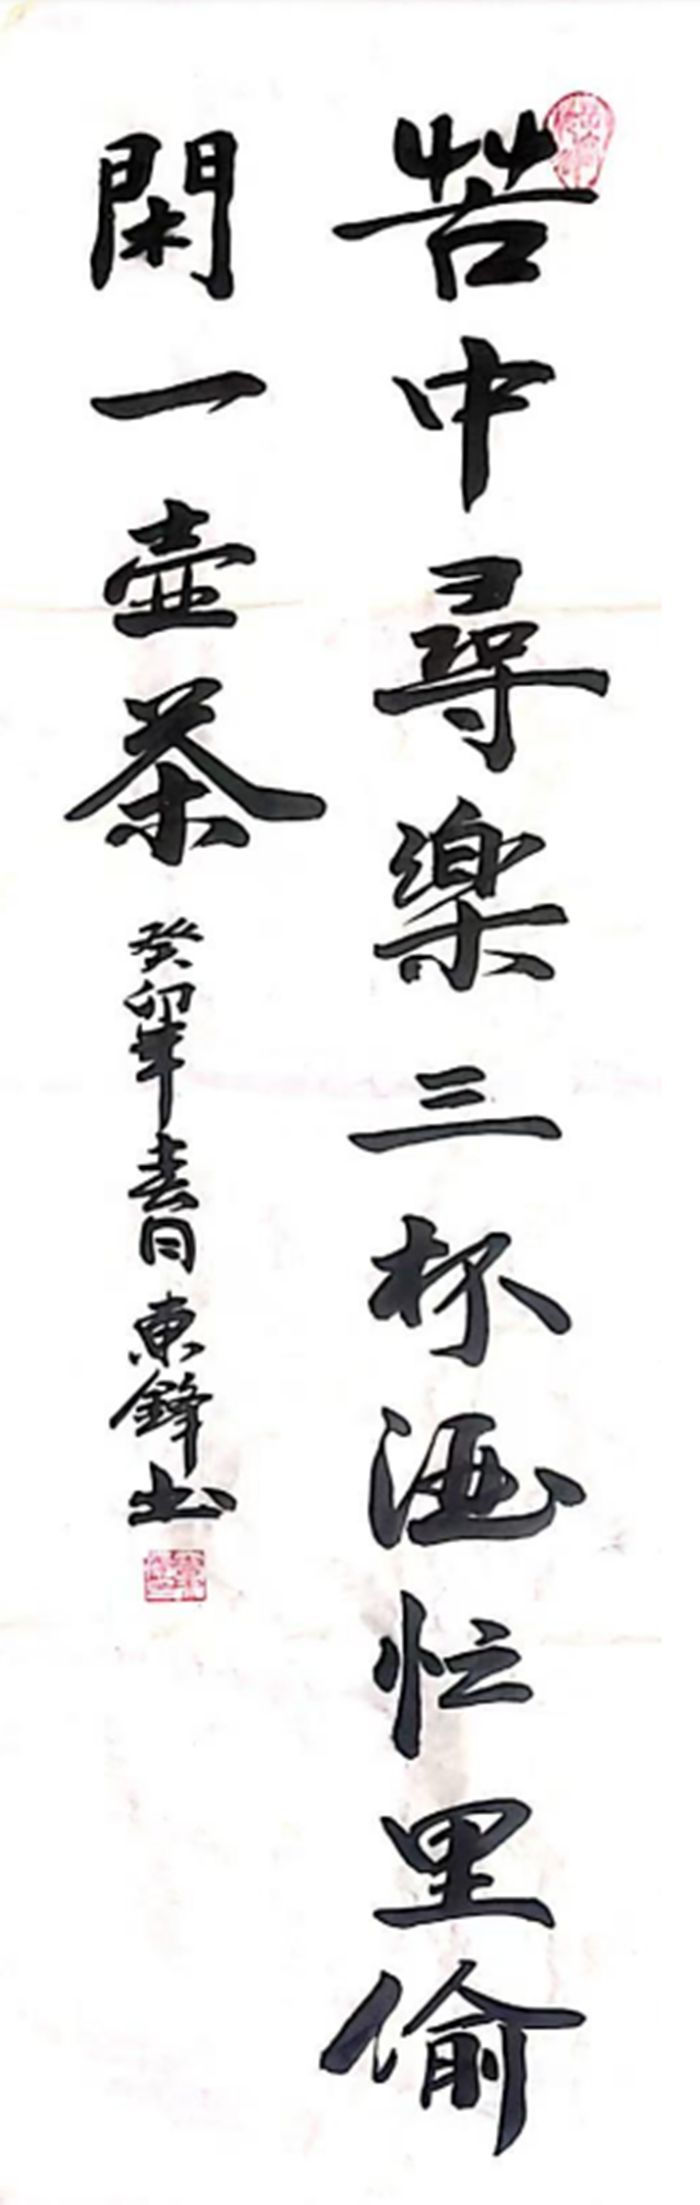 苦中尋樂三杯酒忙里偷
閑一壺茶
癸卯年春月東鋒书